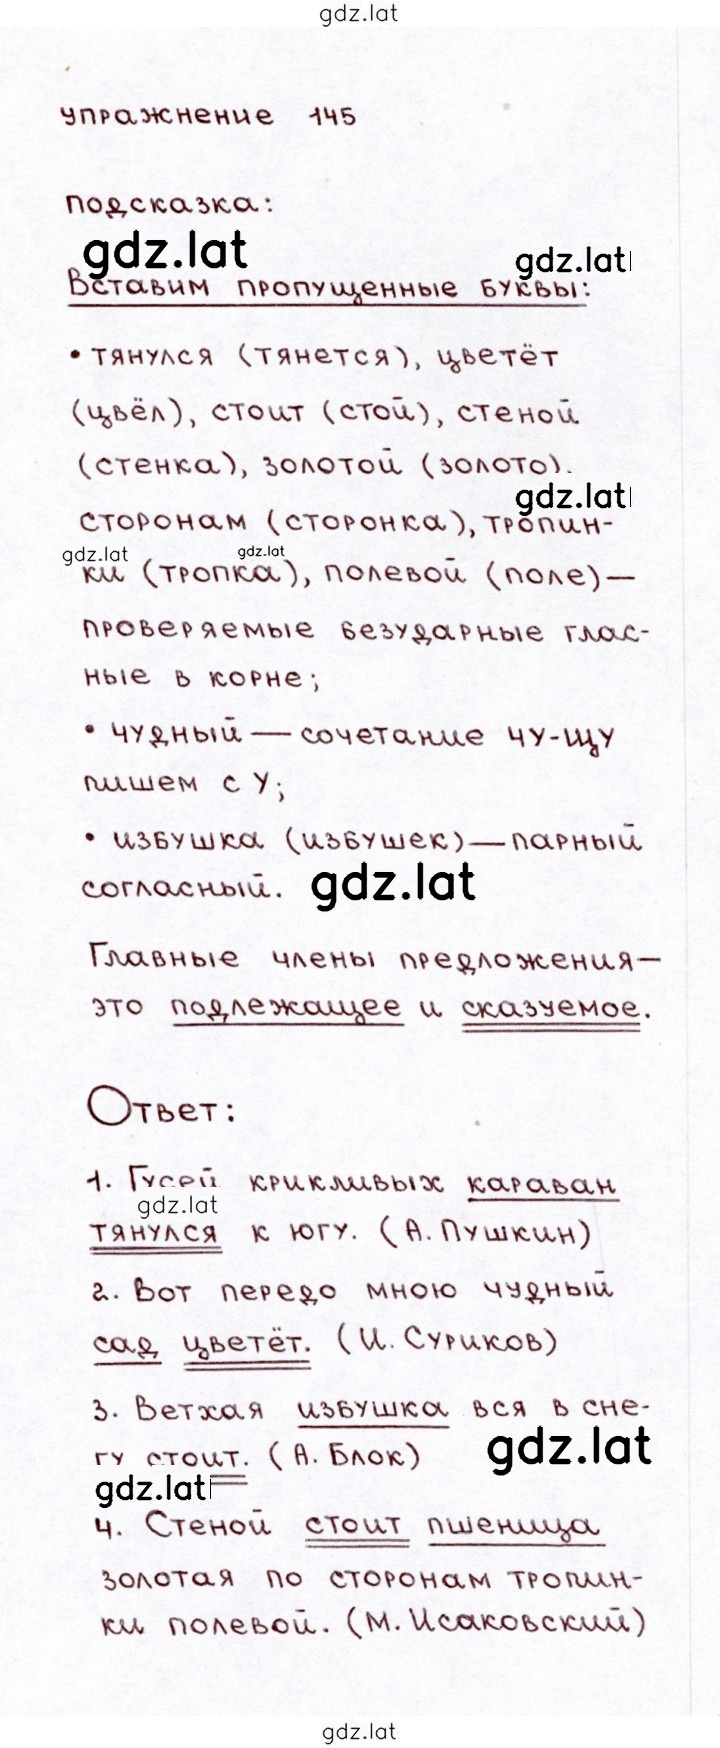 gdz.lat
упражнение 145
подсказка:
gdz.lat
gdz.lat
Вставим пропущенные буквы:
• тянулся (тянется), цветёт
(цвёл), стоит (стой), стеной
(стенка), золотой (золото).
gdz.lat
сторонам (сторонка), тропин-
gdz.lat gdz.lat
ки (тропка), полевой (поле) —
проверяемые безударные глас-
ные в корне;
• чудный — сочетание чу-щу
пишем с у;
• избушка (избушек) — парный
согласный. gdz.lat
Главные члены предложения —
это подлежащее и сказуемое.
Ответ:
1. Гусей крикливых караван
gdz.lat
тянулся к югу. (А. Пушкин)
2. Вот передо мною чудный
сад цветёт. (И. Суриков)
3. Ветхая избушка вся в сне-
гу стоит. (А. Блок) gdz.lat
gdz.lat
4. Стеной стоит пшеница
золотая по сторонам тропин-
ки полевой. (М. Исаковский)
gdz.lat